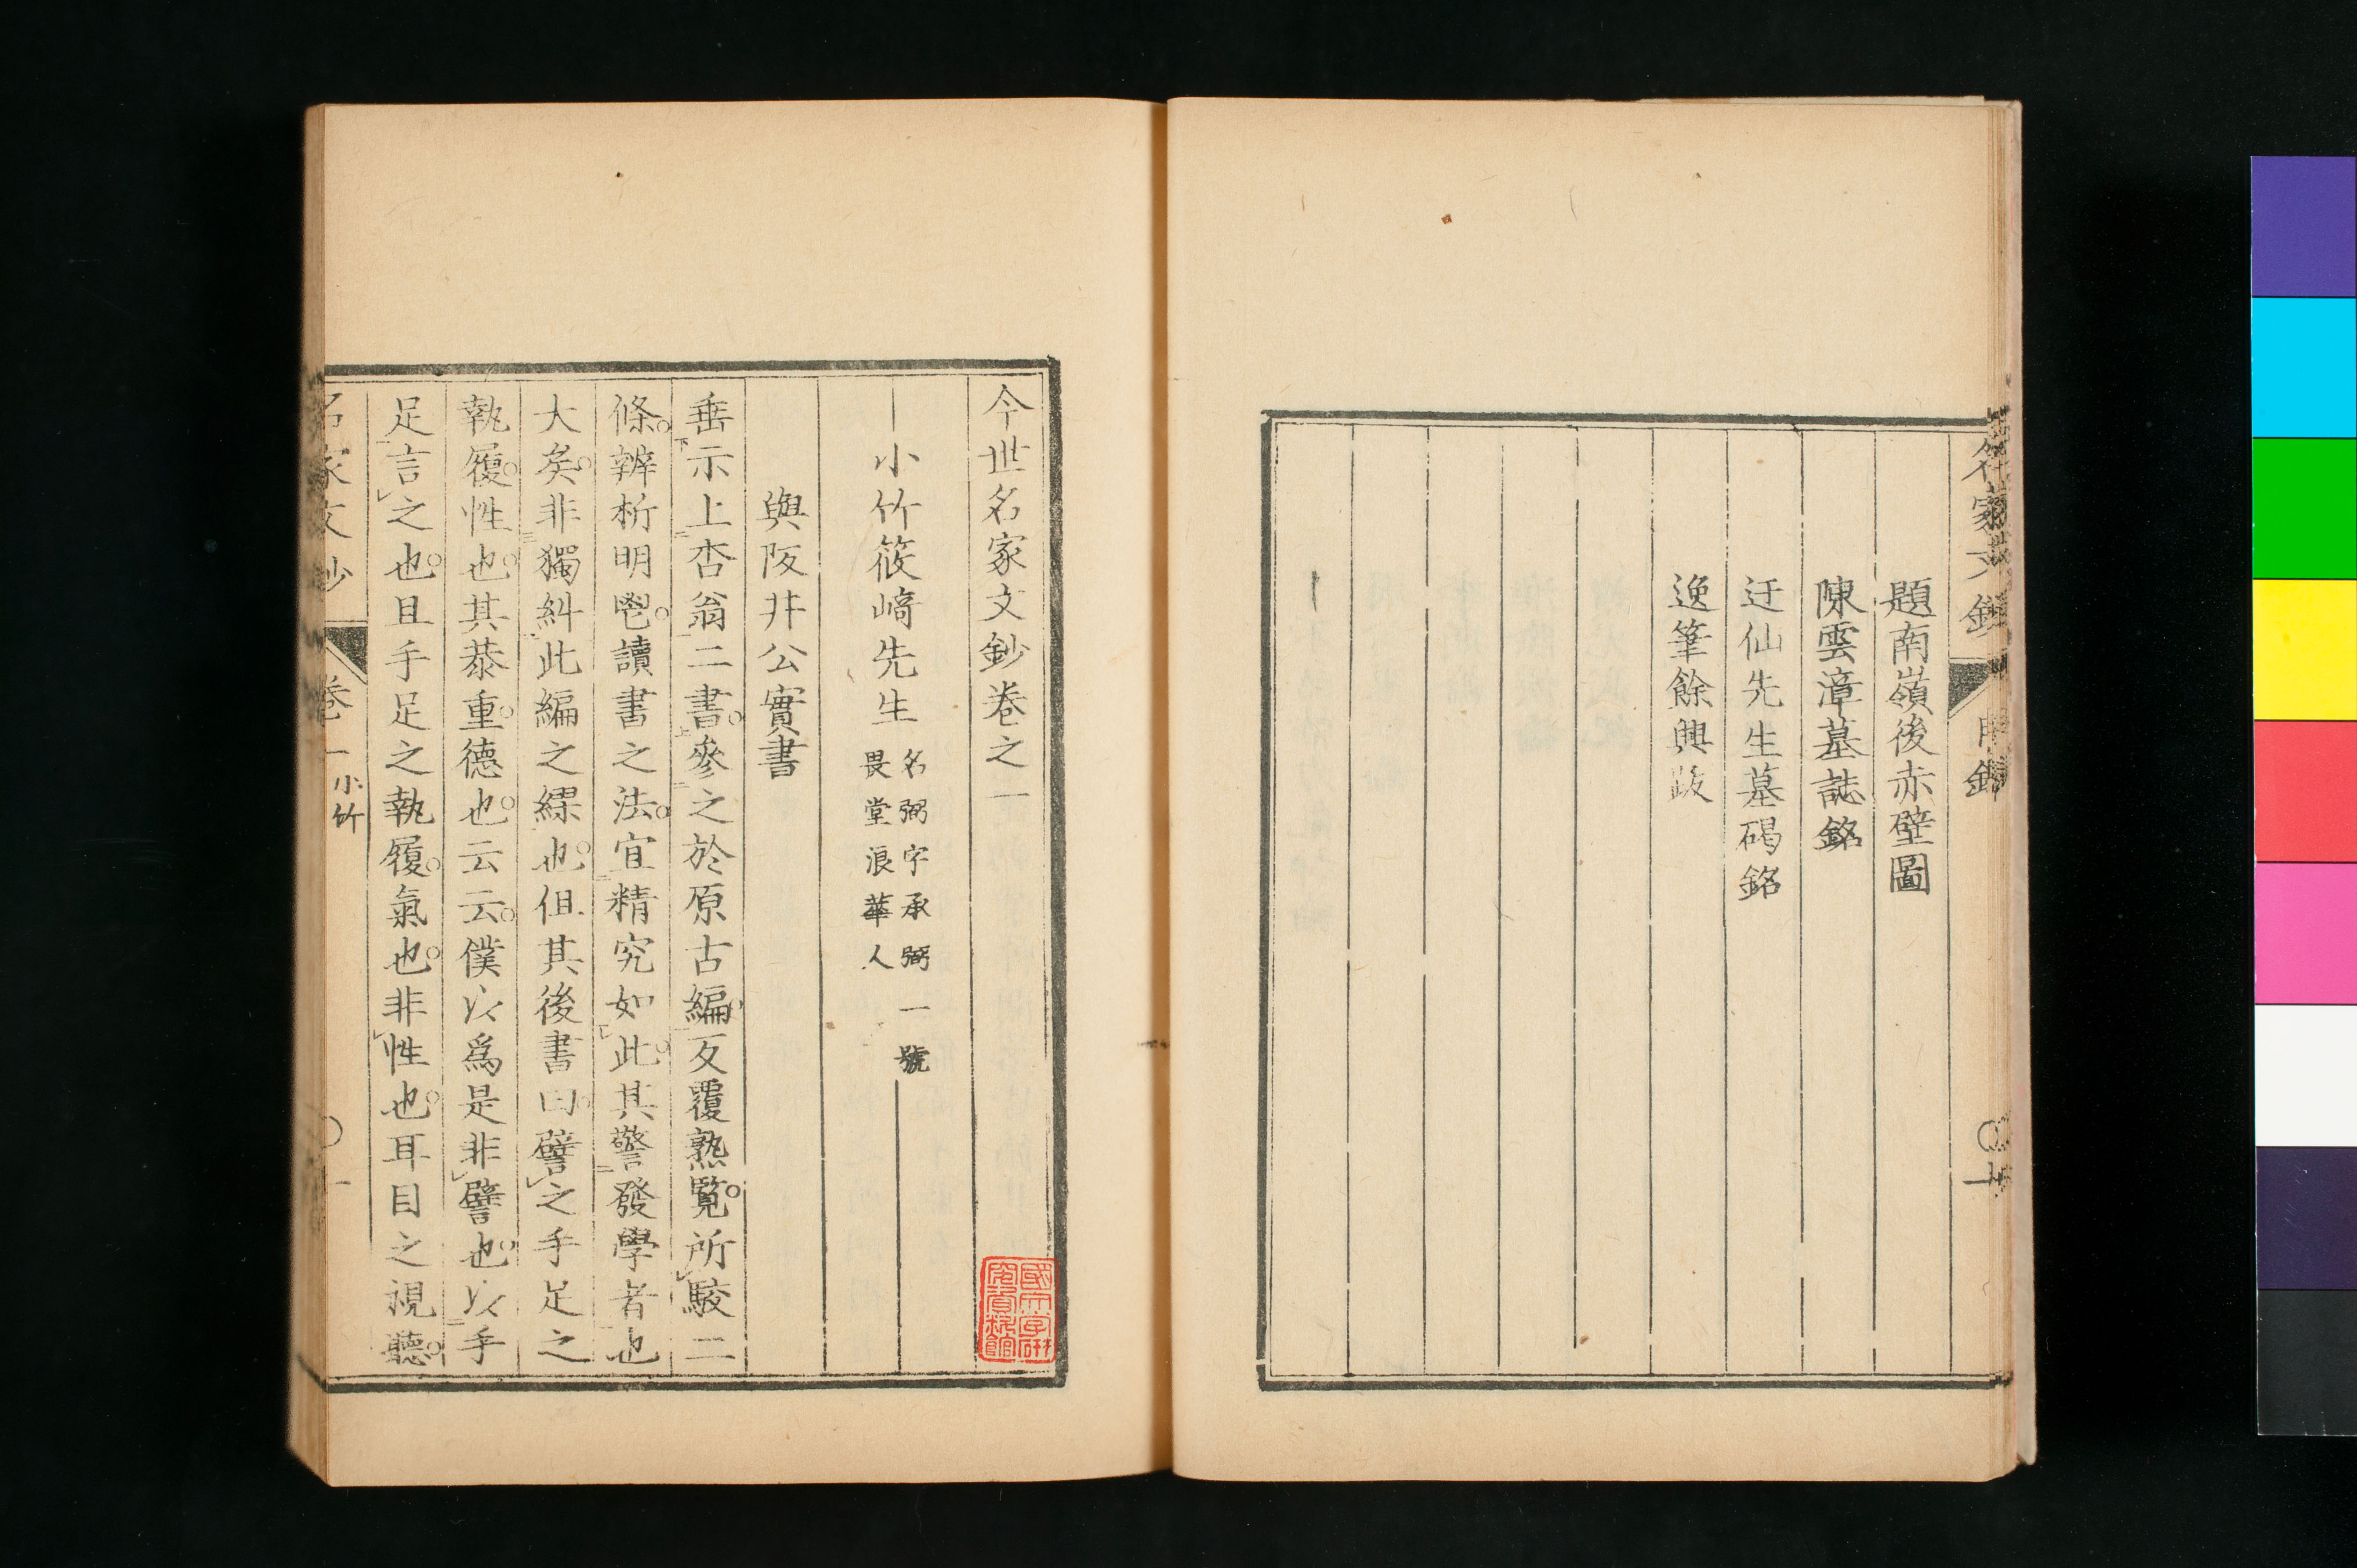 名家文鈔 目錄
題南嶺後赤壁圖
陳雲漳墓誌銘
迂仙先生墓碣銘
逸筆餘興跋
今世名家文鈔卷之一
小竹篠﨑先生 名弼字承弼一號
畏堂浪華人
與阪井公實書
垂示上杏翁二書。參之於原古編、反覆熟覧。所駮二
條。辨析明鬯。讀書之法。宜精究如此。其警發學者也
大矣。非獨糾此編之繆也。但其後書曰。譬之手足之
執履。性也。其恭重。德也。云云。僕以爲是非譬也。以手
足言之也。且手足之執履。氣也。非性也。耳目之視聽。
名家文鈔 卷一 小竹 一
國文学研
究資料館